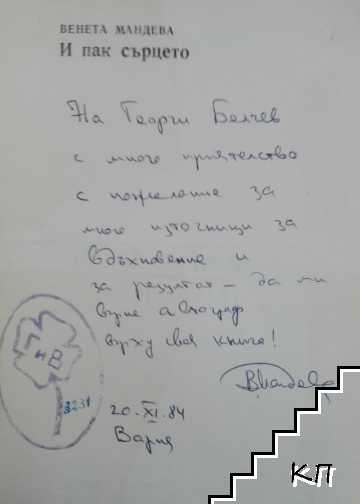 ВЕНЕТА МАНДЕВА
И пак сърцето
На Георги Белчев
с много приятелство
с пожелание за
много източници за
вдъхновение и
за резултат – да ми
върне автограф
върху своя книга!
ВМандева
ГиВ
3231
20. XI. 84
Варна
КП